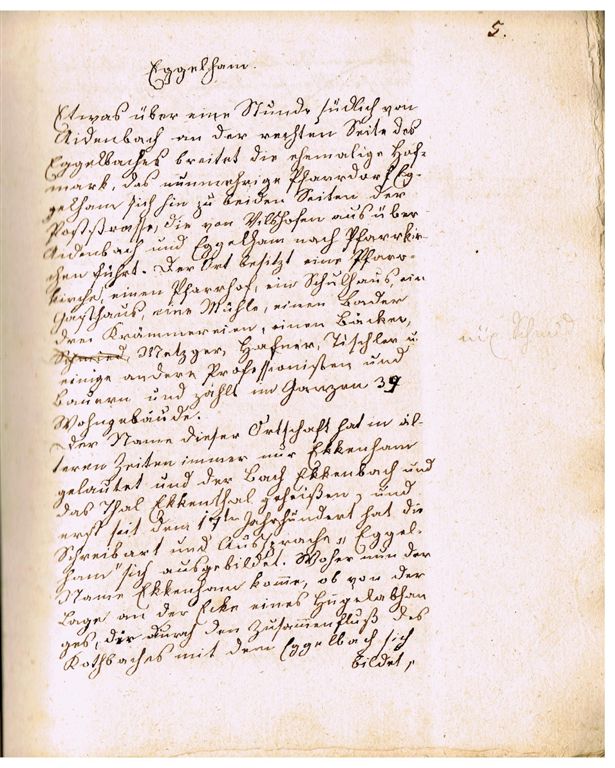 5.
Eggelham.
Etwas über eine Stunde südlich von
Aidenbach an der rechten Seite des
Eggelbaches breitet die ehemalige Hof-
mark, das nunmehrige Pfarrdorf Eg-
gelham sich hin zu beiden Seiten der
Poststrasse, die von Vilshofen aus über
Aidenbach und Eggelham nach Pfarrkir-
chen führt. Der Ort besitzt eine Pfarr-
kirche, einen Pfarrhof, ein Schulhaus, ein
Gasthaus, eine Mühle, einen Bader
drei Krämmereien, einen Bäcker,
Schmied, Metzger, Hafner, Tischler u.
einige andere Professionisten und
Bauern und zählt im Ganzen 39
Wohngebäude.
Der Name dieser Ortschaft hat in äl-
teren Zeiten immer nur Ekkenham
gelautet und der Bach Ekkenbach und
das Thal Ekkenthal geheißen, und
erst seit dem 17ten Jahrhundert hat die
Schreibart und Aussprache „Eggel-
ham" sich ausgebildet. Woher nun der
Name Ekkenham komme, ob von der
Lage an der Ecke eines Hügelabhan
ges, der durch den Zusammenfluß des
Kothbaches mit dem Eggelbach sich
bildet,
Schmid